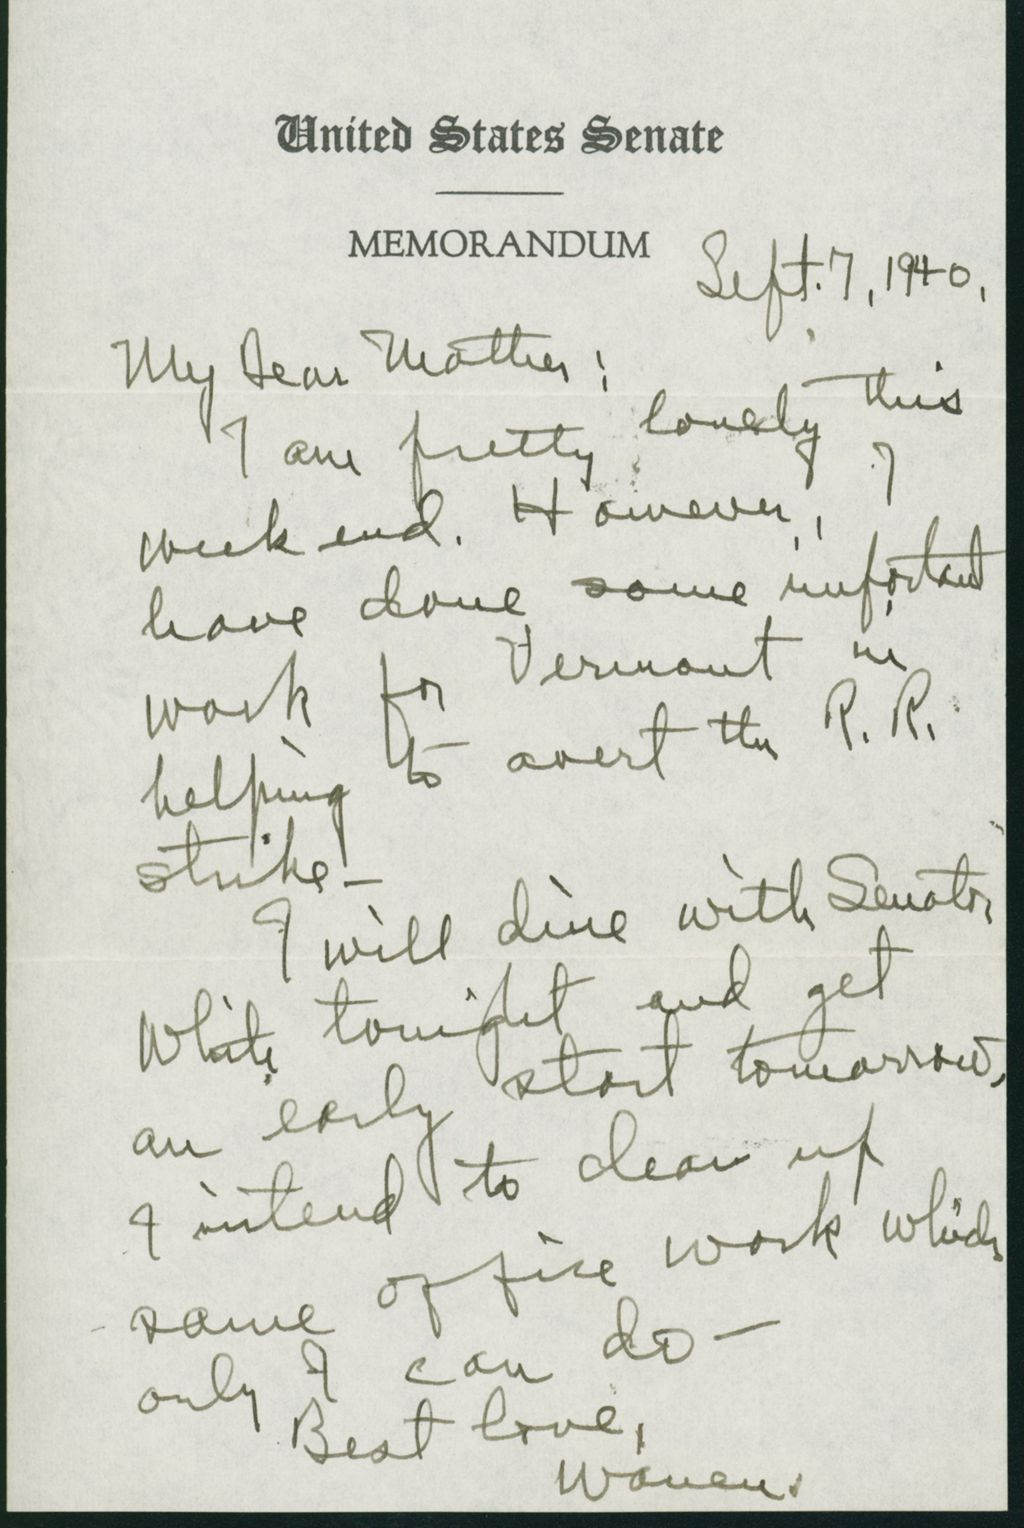 United States Senate
MEMORANDUM
Sept. 7, 1940.
My Dear Mother:
I am pretty lonely this
week end. However, I
have done some important
work for Vermont in
helping to avert the R. R.
strike—
I will dine with Senator
White tonight and get
an early start tomorrow.
I intend to clean up
some office work which
only I can do—
Best love,
Warren.